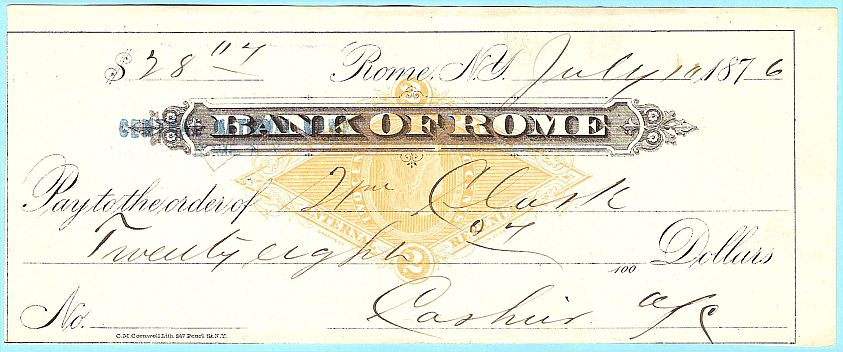 $ 28 07 Rome, N.Y. July 10 1876
BANK OF ROME
Pay to the order of Wm Clark
Twenty eight 07/100 Dollars
No. Cashier a/c
2
INTERNAL REVENUE
2
C.M. Cornwell Lith. 247 Pearl St. N.Y.